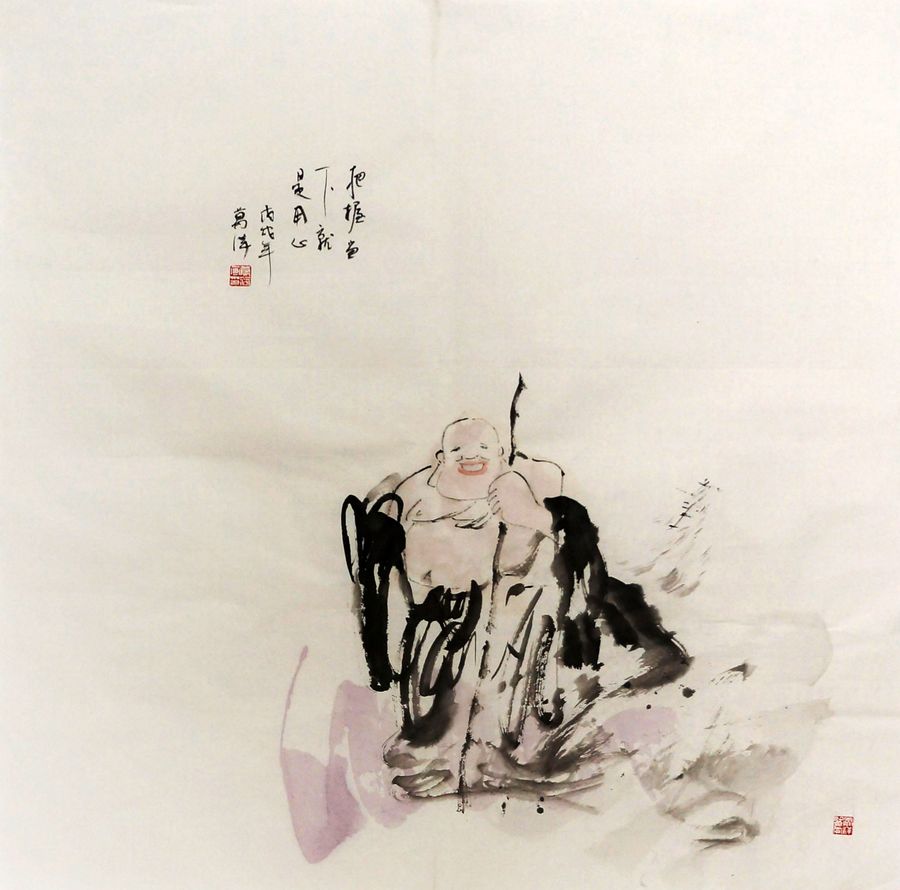 把握当
下就
是用心
丙戌年